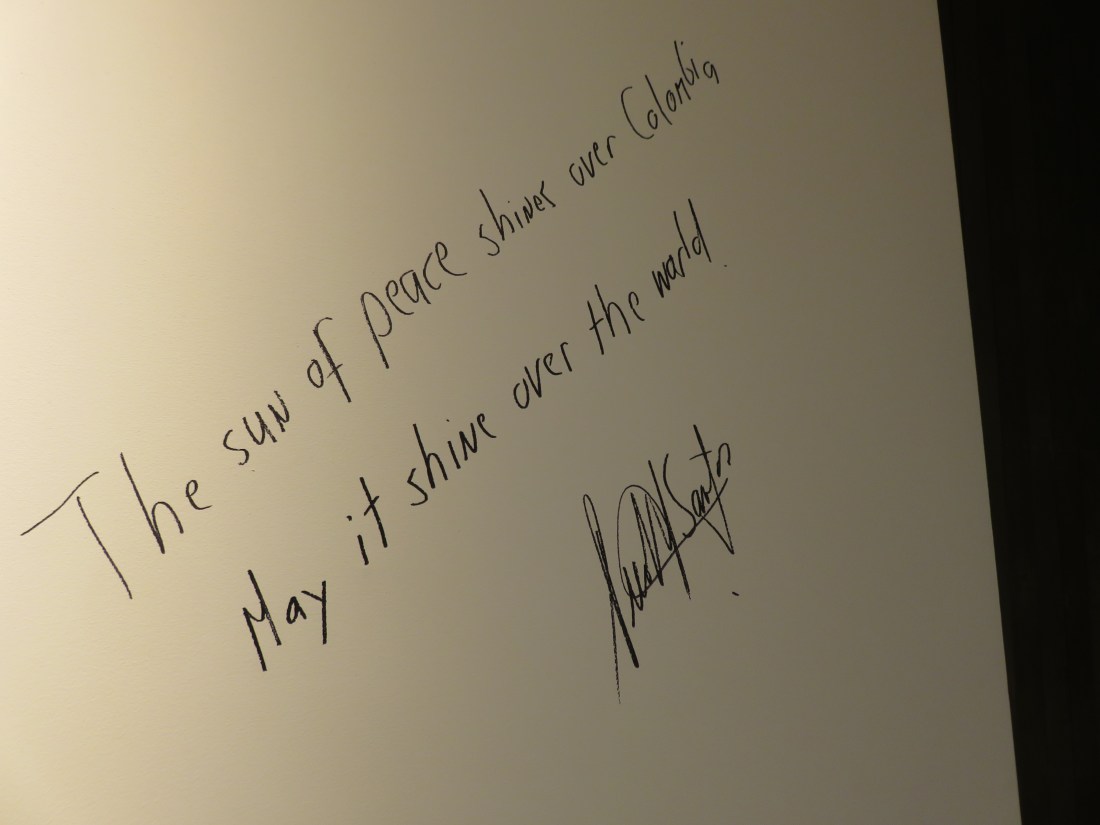 The sun of peace shines over Colombia
May it shine over the world.
Santos